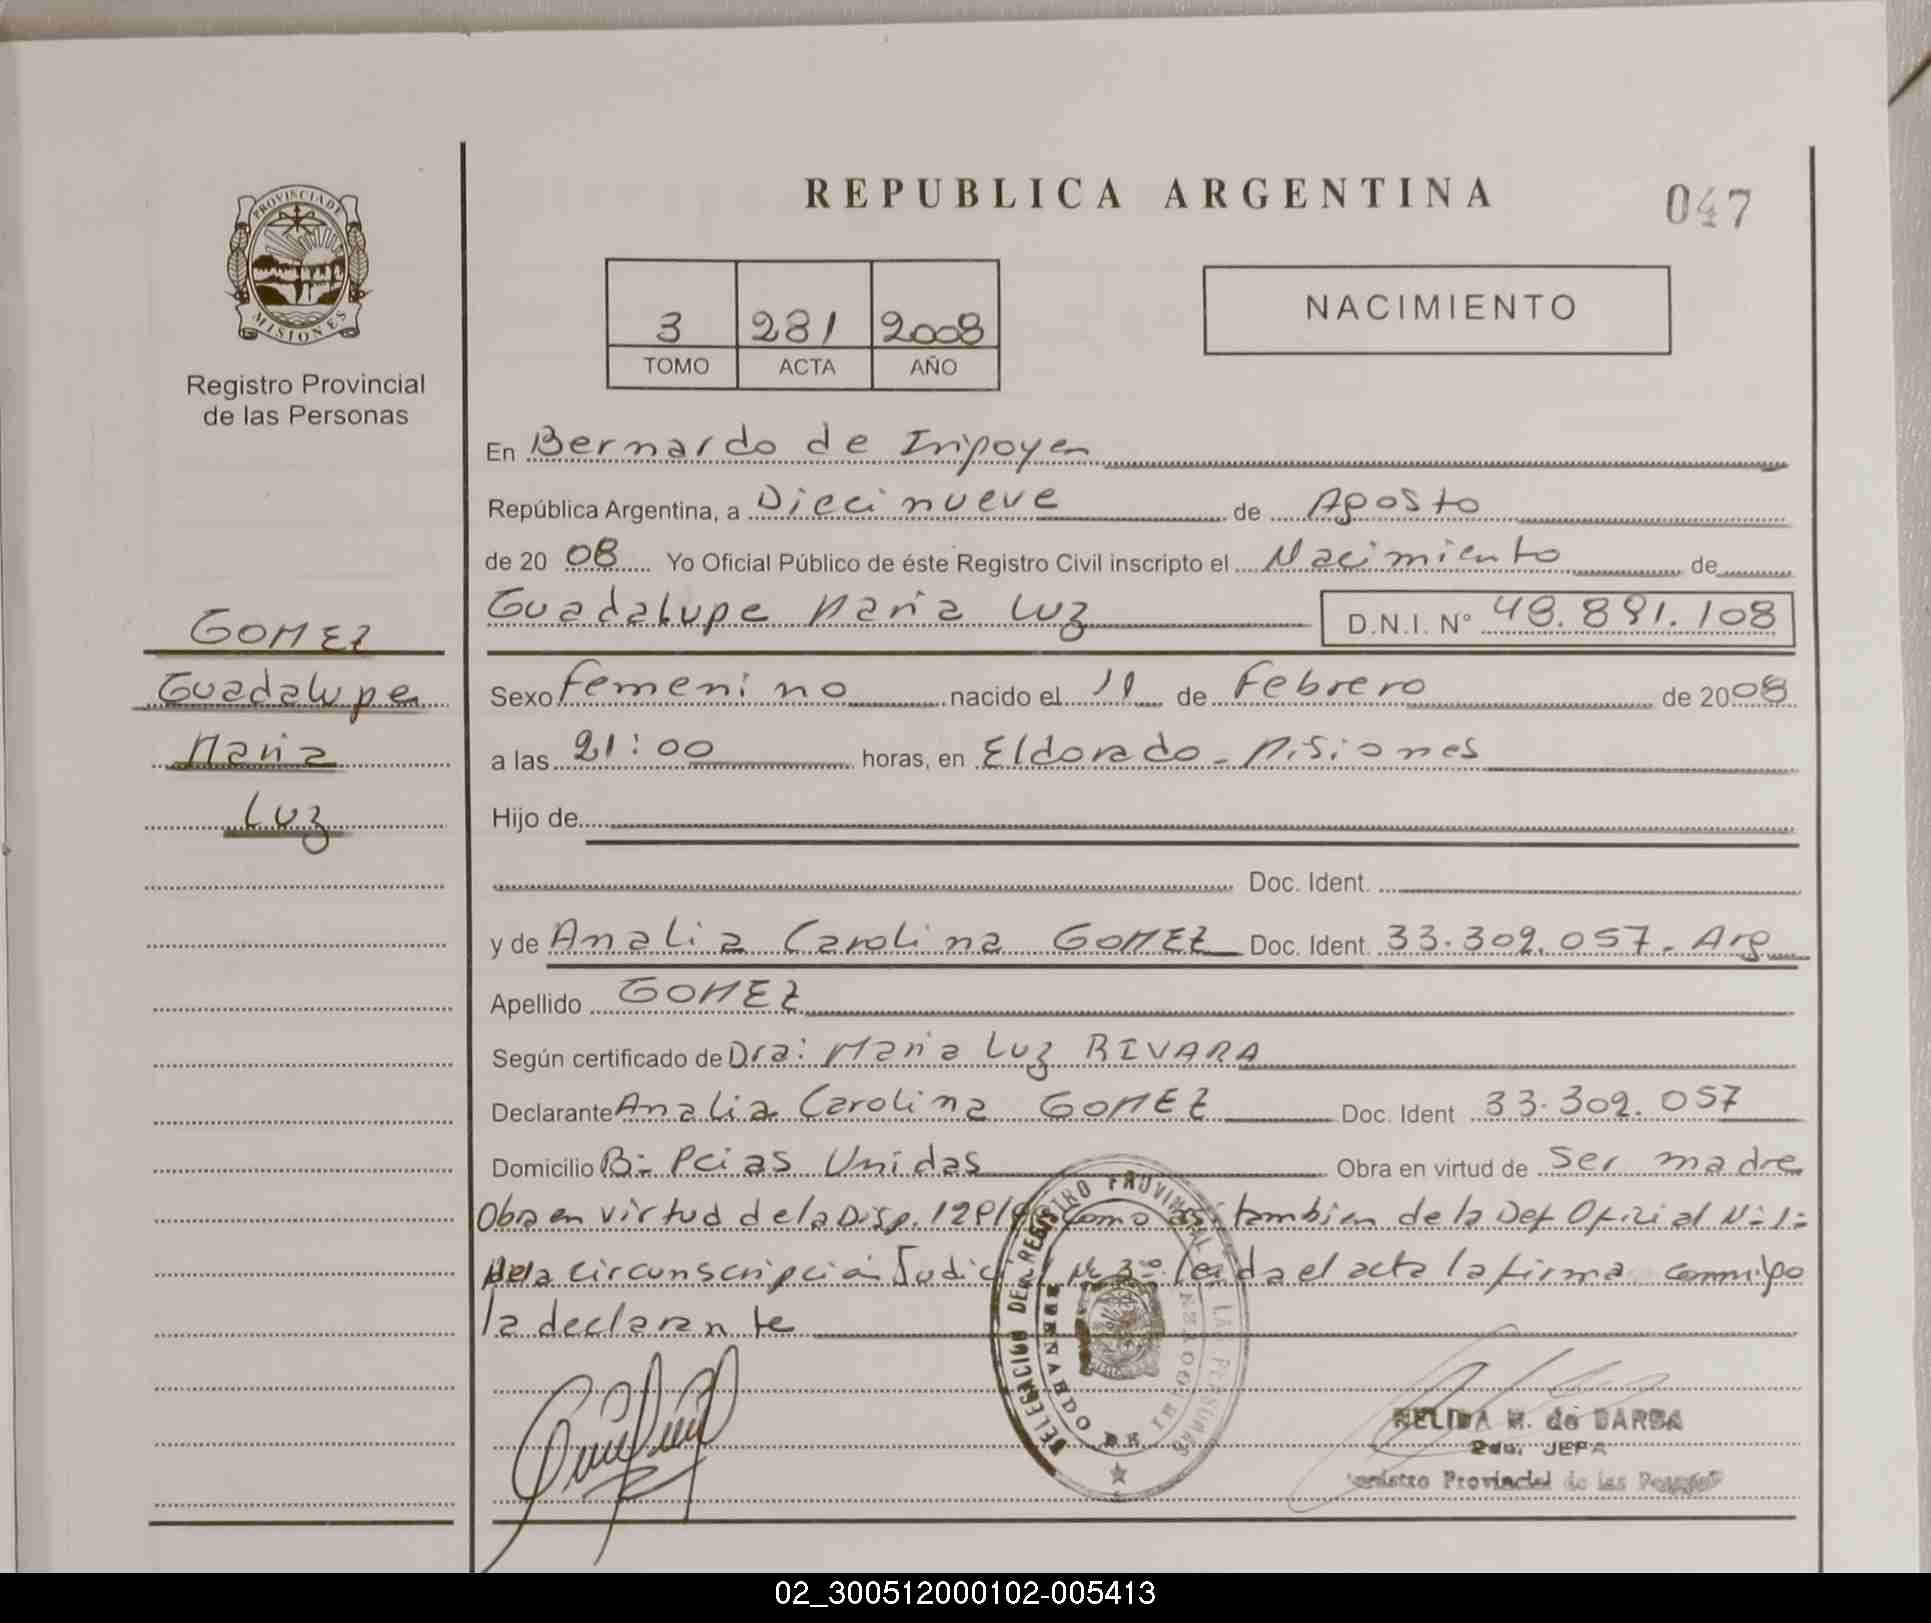 REPUBLICA ARGENTINA
047
PROVINCIA DE
MISIONES
Registro Provincial
de las Personas
3 281 2008
TOMO ACTA AÑO
NACIMIENTO
En Bernardo de Iripoyen
República Argentina, a Diecinueve de Agosto
de 2008 Yo Oficial Público de éste Registro Civil inscripto el Nacimiento de
Guadalupe Maria Luz D.N.I. N° 48.891.108
GOMEZ
Guadalupe
Maria
Luz
Sexo femenino nacido el 11 de Febrero de 2008
a las 21:00 horas, en Eldorado - Misiones
Hijo de
Doc. Ident.
y de Analia Carolina GOMEZ Doc. Ident. 33.302.057 - Arg
Apellido GOMEZ
Según certificado de Dra: Maria Luz RIVARA
Declarante Analia Carolina GOMEZ Doc. Ident 33.302.057
Domicilio B= Pcias Unidas Obra en virtud de Ser madre
Obra en virtud de la Disp. como asi tambien de la Def Oficial N=1=
de la circunscripción Judicial leida el acta la firma conmigo
la declarante
DELEGACION DEL REGISTRO PROVINCIAL DE LAS PERSONAS
BERNARDO DE IRIGOYEN
NELIDA M. de BARBA
2do. JEFA
Registro Provincial de las Personas
02_300512000102-005413